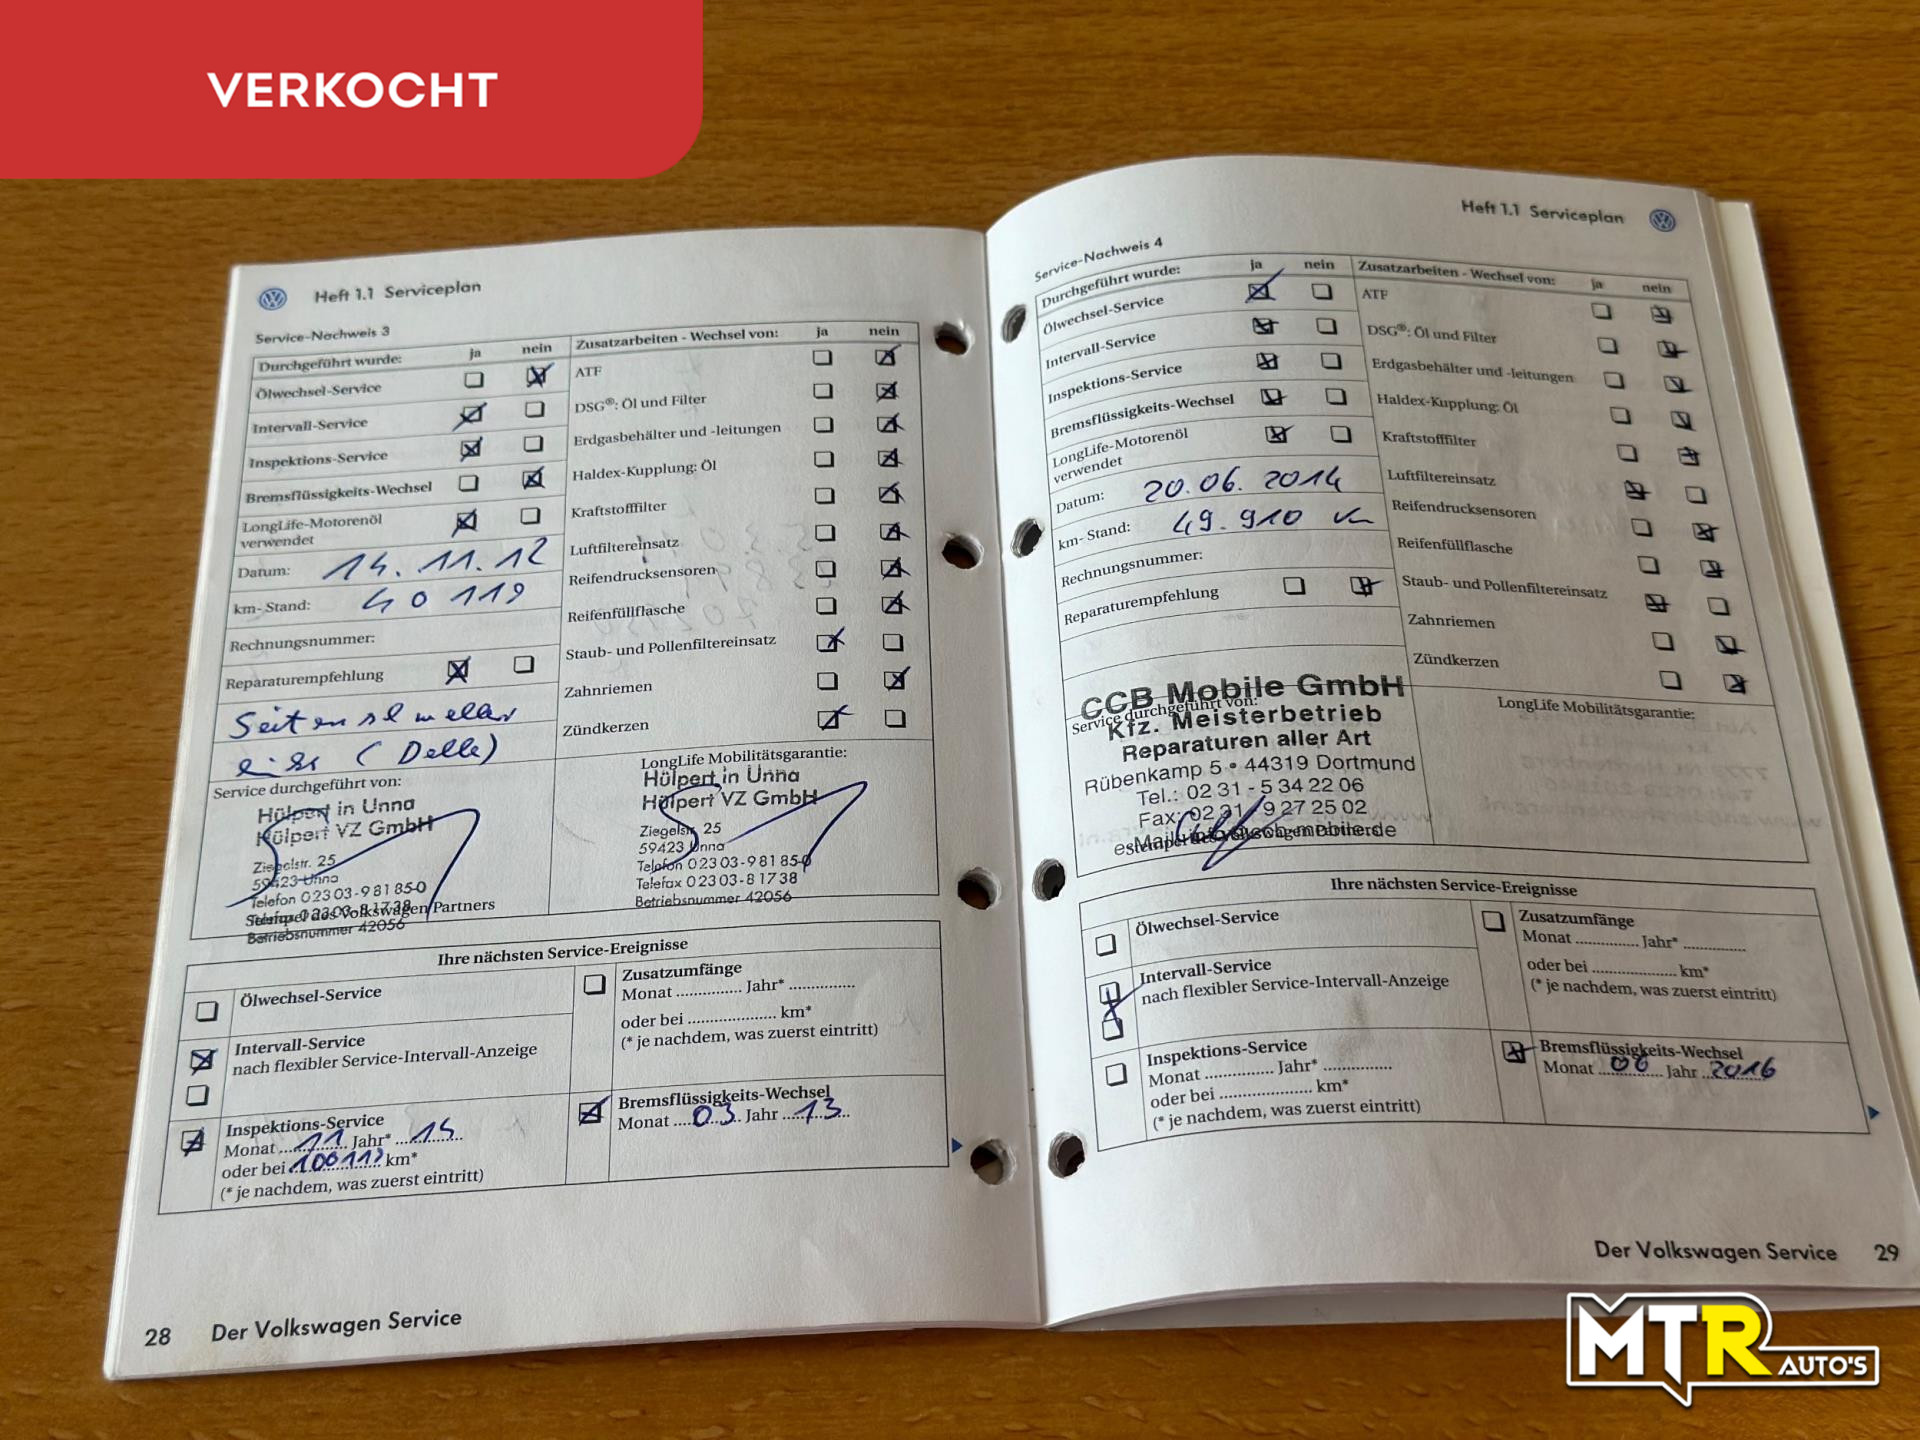 VERKOCHT
Heft 1.1 Serviceplan
Service-Nachweis 3
Durchgeführt wurde: ja nein
Ölwechsel-Service
Intervall-Service
Inspektions-Service
Bremsflüssigkeits-Wechsel
LongLife-Motorenöl
verwendet
Datum: 14.11.12
km- Stand: 40 119
Rechnungsnummer:
Reparaturempfehlung
Seitenschweller
(Delle)
Zusatzarbeiten - Wechsel von: ja nein
ATF
DSG®: Öl und Filter
Erdgasbehälter und -leitungen
Haldex-Kupplung: Öl
Kraftstofffilter
Luftfiltereinsatz
Reifendrucksensoren
Reifenfüllflasche
Staub- und Pollenfiltereinsatz
Zahnriemen
Zündkerzen
Service durchgeführt von:
Hülpert in Unna
Hülpert VZ GmbH
Ziegelstr. 25
59423 Unna
Telefon 0 23 03 - 9 81 85-0
Telefax 0 23 03 - 8 17 38
Stempel des Volkswagen Partners
Betriebsnummer 42056
LongLife Mobilitätsgarantie:
Hülpert in Unna
Hülpert VZ GmbH
Ziegelstr. 25
59423 Unna
Telefon 0 23 03 - 9 81 85-0
Telefax 0 23 03 - 8 17 38
Betriebsnummer 42056
Ihre nächsten Service-Ereignisse
Ölwechsel-Service
Intervall-Service
nach flexibler Service-Intervall-Anzeige
Inspektions-Service
Monat 11 Jahr* 14
oder bei 100119 km*
(* je nachdem, was zuerst eintritt)
Zusatzumfänge
Monat ............... Jahr* ...............
oder bei .................... km*
(* je nachdem, was zuerst eintritt)
Bremsflüssigkeits-Wechsel
Monat 03 Jahr 13
28 Der Volkswagen Service
Heft 1.1 Serviceplan
Service-Nachweis 4
Durchgeführt wurde: ja nein
Ölwechsel-Service
Intervall-Service
Inspektions-Service
Bremsflüssigkeits-Wechsel
LongLife-Motorenöl
verwendet
Datum: 20.06.2014
km- Stand: 49.910 km
Rechnungsnummer:
Reparaturempfehlung
Zusatzarbeiten - Wechsel von: ja nein
ATF
DSG®: Öl und Filter
Erdgasbehälter und -leitungen
Haldex-Kupplung: Öl
Kraftstofffilter
Luftfiltereinsatz
Reifendrucksensoren
Reifenfüllflasche
Staub- und Pollenfiltereinsatz
Zahnriemen
Zündkerzen
Service durchgeführt von:
CCB Mobile GmbH
Kfz. Meisterbetrieb
Reparaturen aller Art
Rübenkamp 5 • 44319 Dortmund
Tel.: 02 31 - 5 34 22 06
Fax: 02 31 - 9 27 25 02
eMail: info@ccb-mobile.de
Stempel des Volkswagen Partners
LongLife Mobilitätsgarantie:
Ihre nächsten Service-Ereignisse
Ölwechsel-Service
Intervall-Service
nach flexibler Service-Intervall-Anzeige
Inspektions-Service
Monat ............... Jahr* ...............
oder bei .................... km*
(* je nachdem, was zuerst eintritt)
Zusatzumfänge
Monat ............... Jahr* ...............
oder bei .................... km*
(* je nachdem, was zuerst eintritt)
Bremsflüssigkeits-Wechsel
Monat 06 Jahr 2016
Der Volkswagen Service 29
MTR AUTO'S